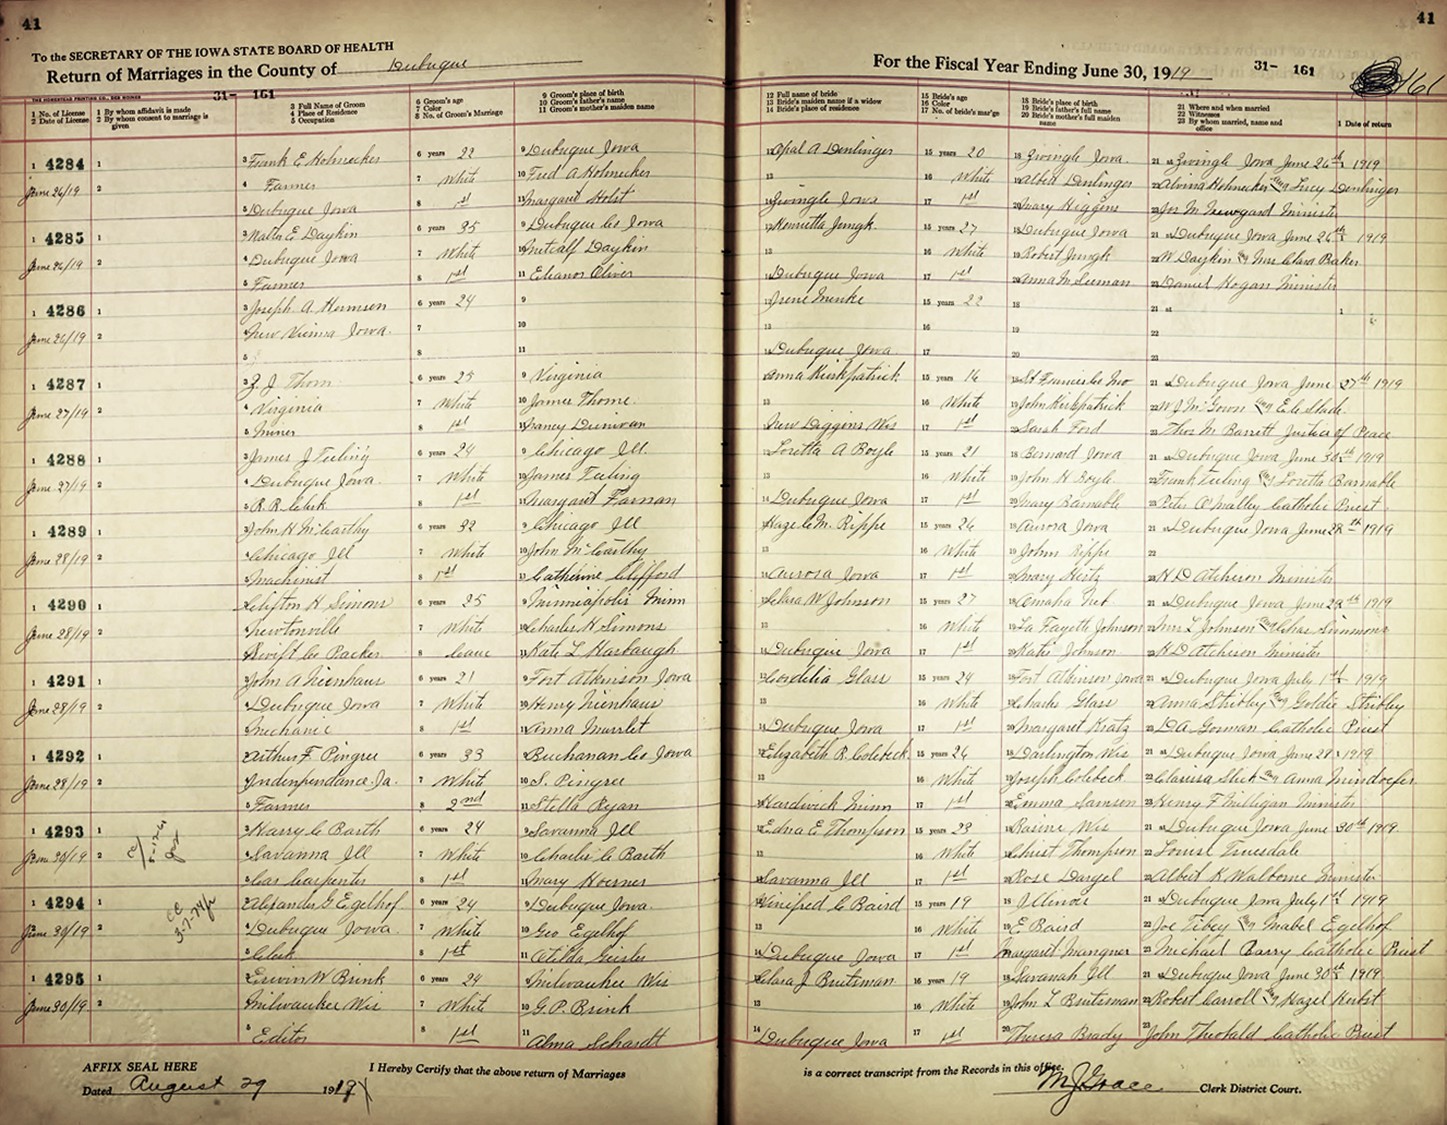 41
To the SECRETARY OF THE IOWA STATE BOARD OF HEALTH
Return of Marriages in the County of Dubuque
31- 161
1 No. of License
2 Date of License
1 By whom affidavit is made
2 By whom consent to marriage is given
3 Full Name of Groom
4 Place of Residence
5 Occupation
6 Groom's age
7 Color
8 No. of Groom's Marriage
9 Groom's place of birth
10 Groom's father's name
11 Groom's mother's maiden name
1 4284 1 3 Frank E. Hohnecker 6 years 22 9 Dubuque Iowa
June 26/19 2 4 Farmer 7 White 10 Fred A Hohnecker
5 Dubuque Iowa 8 1st 11 Margaret Holst
1 4285 1 3 Walter E Daykin 6 years 35 9 Dubuque Co Iowa
June 26/19 2 4 Dubuque Iowa 7 White 10 Metcalf Daykin
5 Farmer 8 1st 11 Eleanor Oliver
1 4286 1 3 Joseph A. Hermsen 6 years 24 9
June 26/19 2 4 New Vienna Iowa. 7 10
5 8 11
1 4287 1 3 Z. J Thorn 6 years 25 9 Virginia
June 27/19 2 4 Virginia 7 White 10 James Thorne.
5 Miner 8 1st 11 Nancy Dunivan
1 4288 1 3 James J Feeling 6 years 24 9 Chicago Ill.
June 27/19 2 4 Dubuque Iowa. 7 White 10 James Feeling
5 R.R. Clerk 8 1st 11 Margaret Farnan
1 4289 1 3 John H McCarthy 6 years 32 9 Chicago Ill
June 28/19 2 4 Chicago Ill 7 White 10 John McCarthy
5 Machinist 8 1st 11 Catherine Clifford
1 4290 1 3 Clifton H Simons 6 years 25 9 Minneapolis Minn
June 28/19 2 4 Newtonville 7 White 10 Charles H Simons
5 Swift Co Packer 8 11 Kate L Harbaugh
1 4291 1 3 John A Nienhaus 6 years 21 9 Fort Atkinson Iowa
June 28/19 2 4 Dubuque Iowa 7 White 10 Henry Nienhaus
5 Mechanic 8 1st 11 Anna
1 4292 1 3 Arthur F. Pingree 6 years 33 9 Buchanan Co Iowa
June 28/19 2 4 Independence. Ia. 7 White 10 S. Pingree
5 Farmer 8 2nd 11 Stella Ryan
1 4293 1 3 Harry C Barth 6 years 24 9 Savanna Ill
June 30/19 2 4 Savanna Ill 7 White 10 Charlie C Barth
5 Car Carpenter 8 1st 11 Mary Hoerner
1 4294 1 CC 3 Alexander G Egelhof 6 years 24 9 Dubuque Iowa.
June 30/19 2 4 Dubuque Iowa. 7 White 10 Geo Egelhof
5 Clerk 8 1st 11 Otilda Geisler
1 4295 1 3 Erwin W Brink 6 years 24 9 Milwaukee Wis
June 30/19 2 4 Milwaukee Wis 7 White 10 G. P. Brink
5 Editor 8 1st 11 Alma Schardt
AFFIX SEAL HERE
Dated August 29 1919
I Hereby Certify that the above return of Marriages
41
For the Fiscal Year Ending June 30, 1919
31- 161
161
12 Full name of bride
13 Bride's maiden name if a widow
14 Bride's place of residence
15 Bride's age
16 Color
17 No. of bride's mar'ge
18 Bride's place of birth
19 Bride's father's full name
20 Bride's mother's full maiden name
21 Where and when married
22 Witnesses
23 By whom married, name and office
1 Date of return
12 Opal A Denlinger 15 years 20 18 Zwingle Iowa. 21 at Zwingle Iowa June 26th 1919
13 16 White 19 Albert Denlinger 22 Alvina Hohnecker Lucy Denlinger
14 Zwingle Iowa 17 1st 20 Mary Higgens 23 Jos M Newgard Minister
12 Henrietta Jungk. 15 years 27 18 Dubuque Iowa 21 at Dubuque Iowa June 26th 1919
13 16 White 19 Robert Jungk 22 W Daykin Mrs Clara Baker
14 Dubuque Iowa 17 1st 20 Anna M Sieman 23 Daniel Hogan Minister
12 Irene Menke 15 years 22 18 21 at 1
13 16 19 22
14 Dubuque Iowa 17 20 23
12 Anna Kirkpatrick 15 years 16 18 St Francis Co Mo 21 at Dubuque Iowa June 27th 1919
13 16 White 19 John Kirkpatrick 22 W J McGown E.C. Slade.
14 New Diggins Wis 17 1st 20 Sarah Ford 23 Thos M Barrett Justice of Peace
12 Loretta A Boyle 15 years 21 18 Bernard Iowa 21 at Dubuque Iowa June 30th 1919
13 16 White 19 John H Boyle 22 Frank Feeling Loretta Barnable
14 Dubuque Iowa 17 1st 20 Mary Barnable 23 Peter O'Malley Catholic Priest
12 Hazel M. Rippe 15 years 26 18 Aurora Iowa 21 at Dubuque Iowa June 28th 1919
13 16 White 19 John Rippe 22
14 Aurora Iowa 17 1st 20 Mary Hertz 23 H D Atcherson Minister
12 Clara W Johnson 15 years 27 18 Omaha Neb 21 at Dubuque Iowa June 29th 1919
13 16 White 19 La Fayette Johnson 22 Mrs L Johnson Chas Simmons
14 Dubuque Iowa 17 1st 20 Katie Johnson 23 H D Atcherson Minister
12 Cordilia Glass 15 years 24 18 Fort Atkinson Iowa 21 at Dubuque Iowa July 1st 1919
13 16 White 19 Charles Glass 22 Anna Stribley Goldie Stribley
14 Dubuque Iowa 17 1st 20 Margaret Kratz 23 D.A. Gorman Catholic Priest
12 Elizabeth R. Colebeck 15 years 26 18 Darlington Wis 21 at Dubuque Iowa June 28. 1919
13 16 White 19 Joseph Colebeck 22 Clarissa Anna Mindorfer
14 Hardwick Minn 17 1st 20 Emma Samson 23 Henry F Milligan Minister
12 Edna E Thompson 15 years 23 18 Racine Wis 21 at Dubuque Iowa June 30th 1919
13 16 White 19 Christ Thompson 22 Louise Truesdale
14 Savanna Ill 17 1st 20 Rose Dargel 23 Albert K Walborne Minister
12 Winifred C Baird 15 years 19 18 Illinois 21 at Dubuque Iowa July 1st 1919
13 16 White 19 E Baird 22 Joe Tibey Mabel Egelhof
14 Dubuque Iowa 17 1st 20 Margaret Mangner 23 Michael Barry Catholic Priest
12 Clara J Bruitsman 16 years 19 18 Savanah Ill 21 at Dubuque Iowa June 30th 1919
13 16 White 19 John L Bruitsman 22 Robert Carroll Hazel Herbst
14 Dubuque Iowa 17 1st 20 Theresa Brady 23 John Theobald Catholic Priest
is a correct transcript from the Records in this office.
M. J. Grace Clerk District Court.